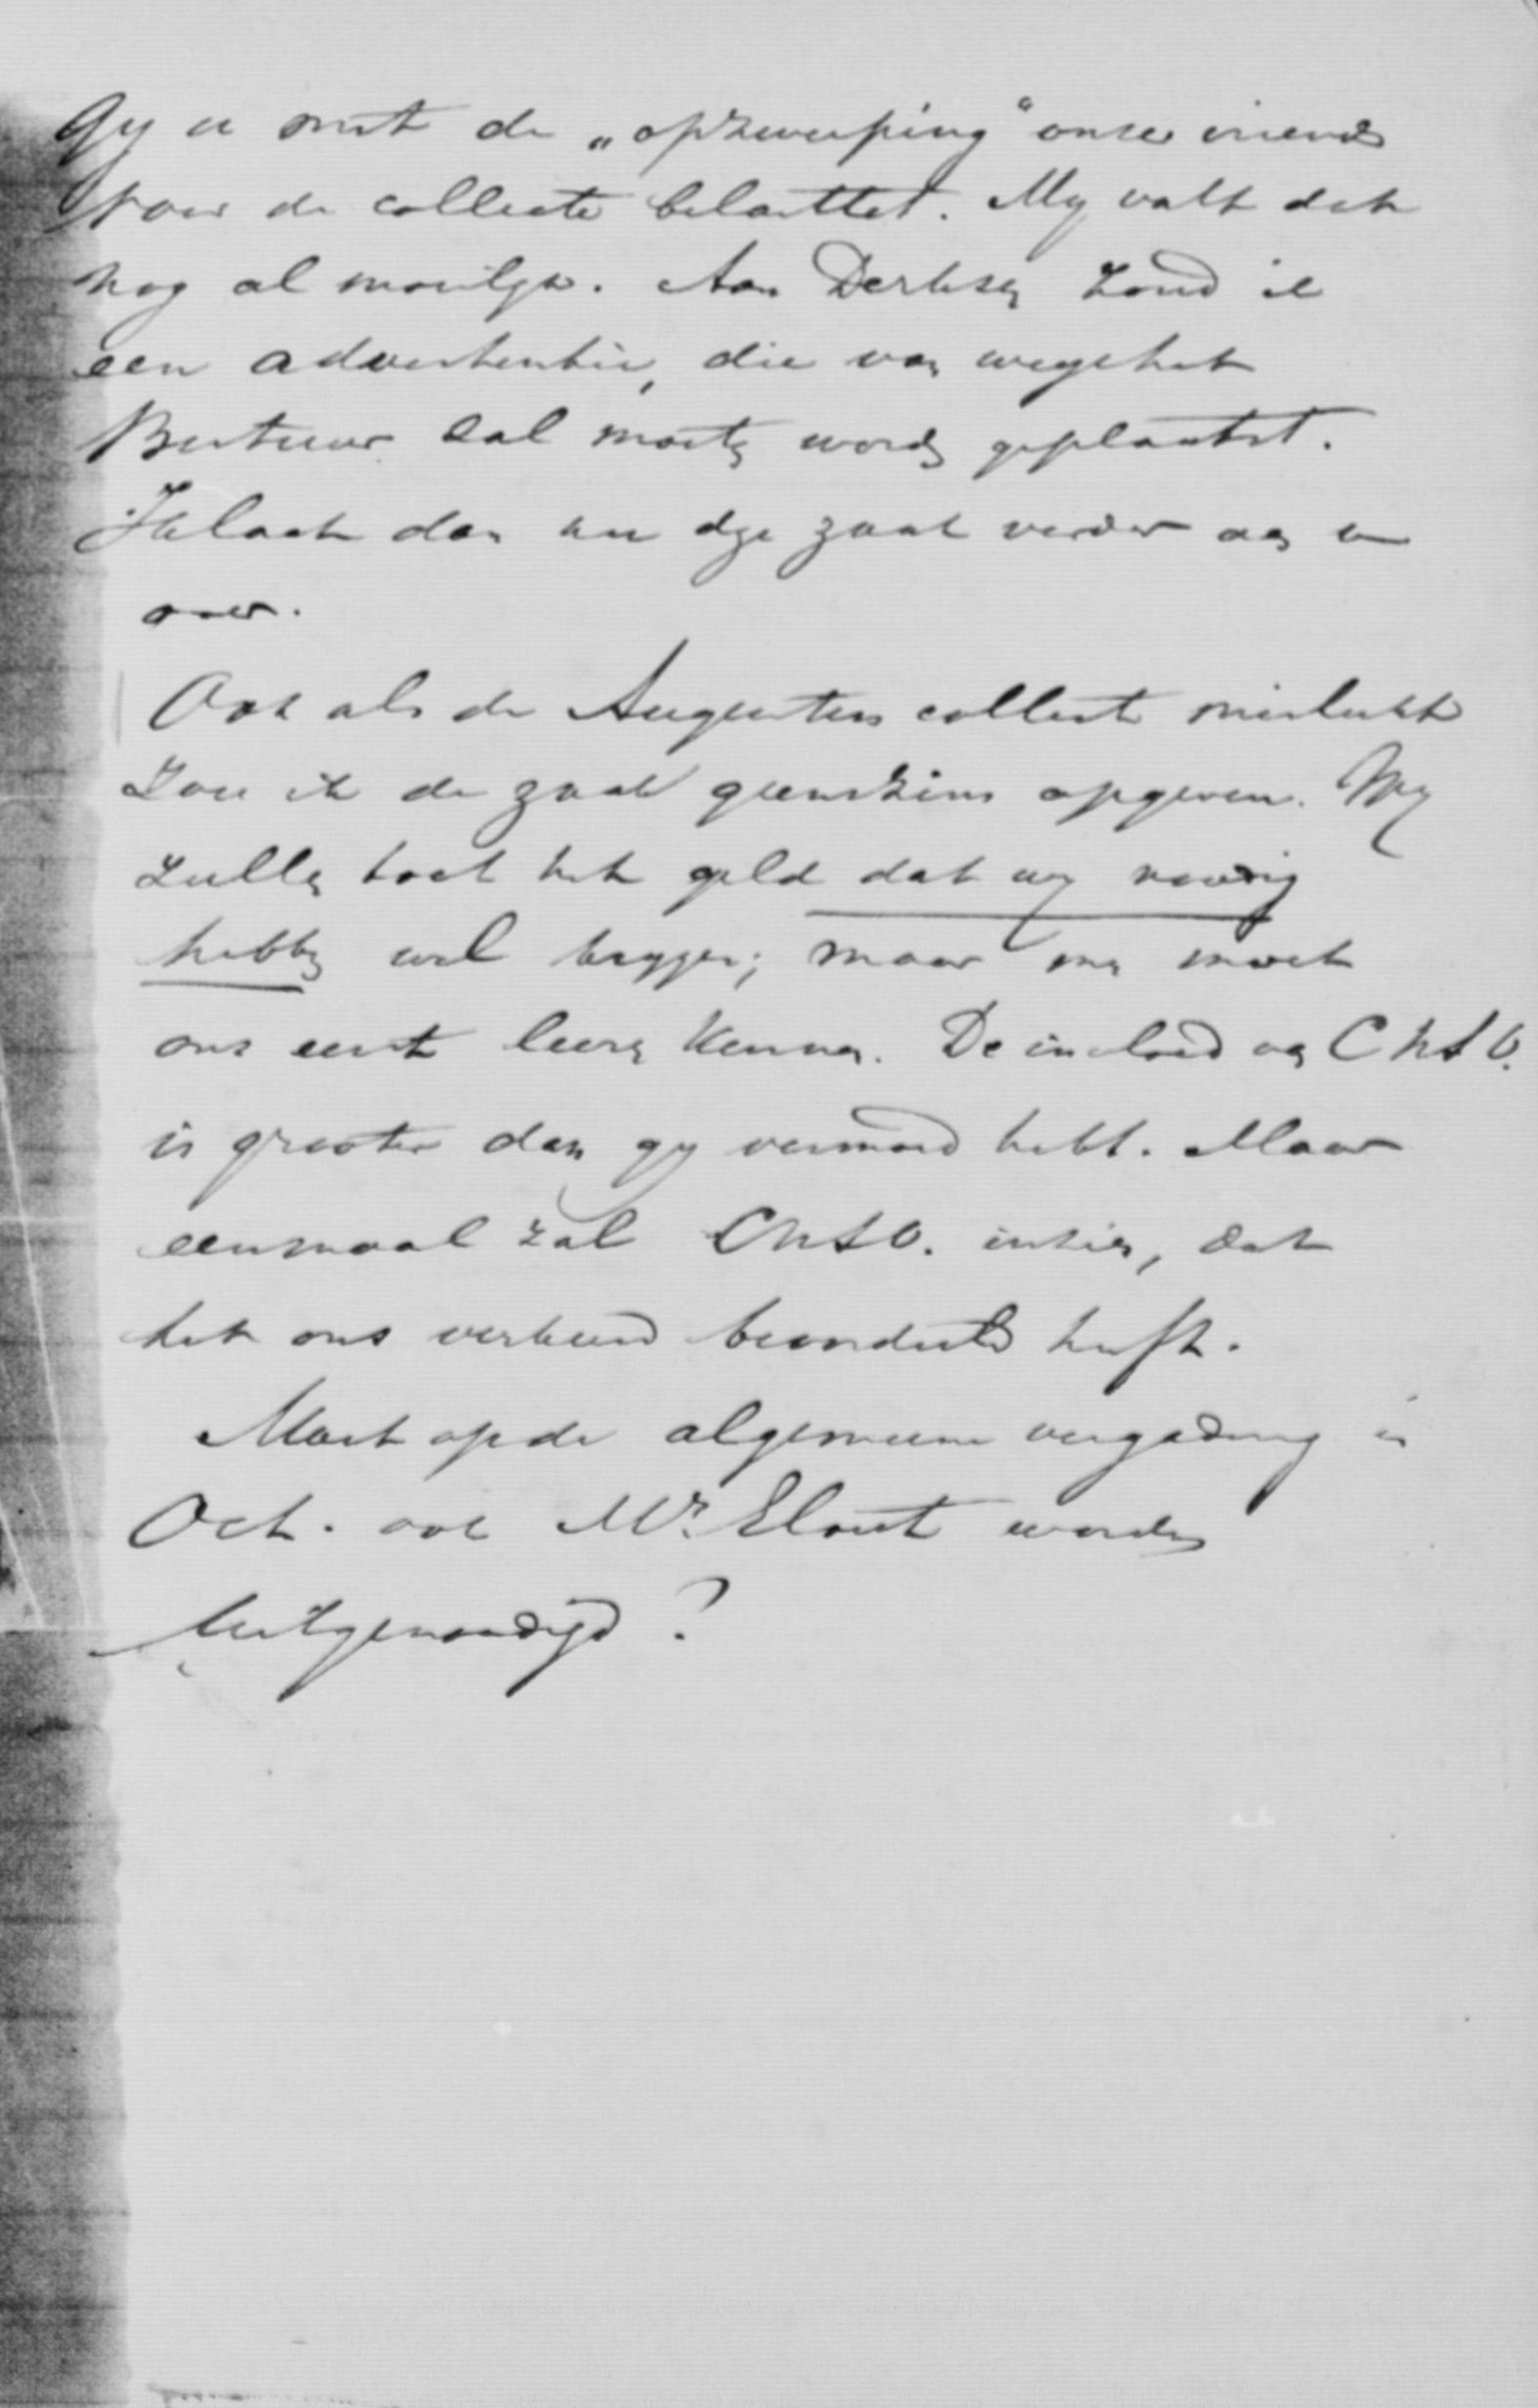 Gy u met de „opzweeping" onzer vriend
voor de collecte belasttet. My valt dat
nog al moeilyk. Aan Derksen zond ik
een advertentie, die van wege het
Bestuur zal moeten worden geplaatst.
Ik laat dan nu dze zaak verder aan u
over.
Ook als de Augustus collecte mislukt
zou ik de zaak geenszins opgeven. Wy
zullen toch het geld dat wy noodig
hebben wel krygen; maar men moet
ons eerst leeren kennen. De invloed van C h S O.
is grooter dan gy vermoed hebt. Maar
eenmaal zal ChSO. inzien, dat
het ons verkeerd beoordeeld heeft.
Moet op de algemeene vergadering in
Oct. ook Mr. Elout worden
uitgenoodigd?